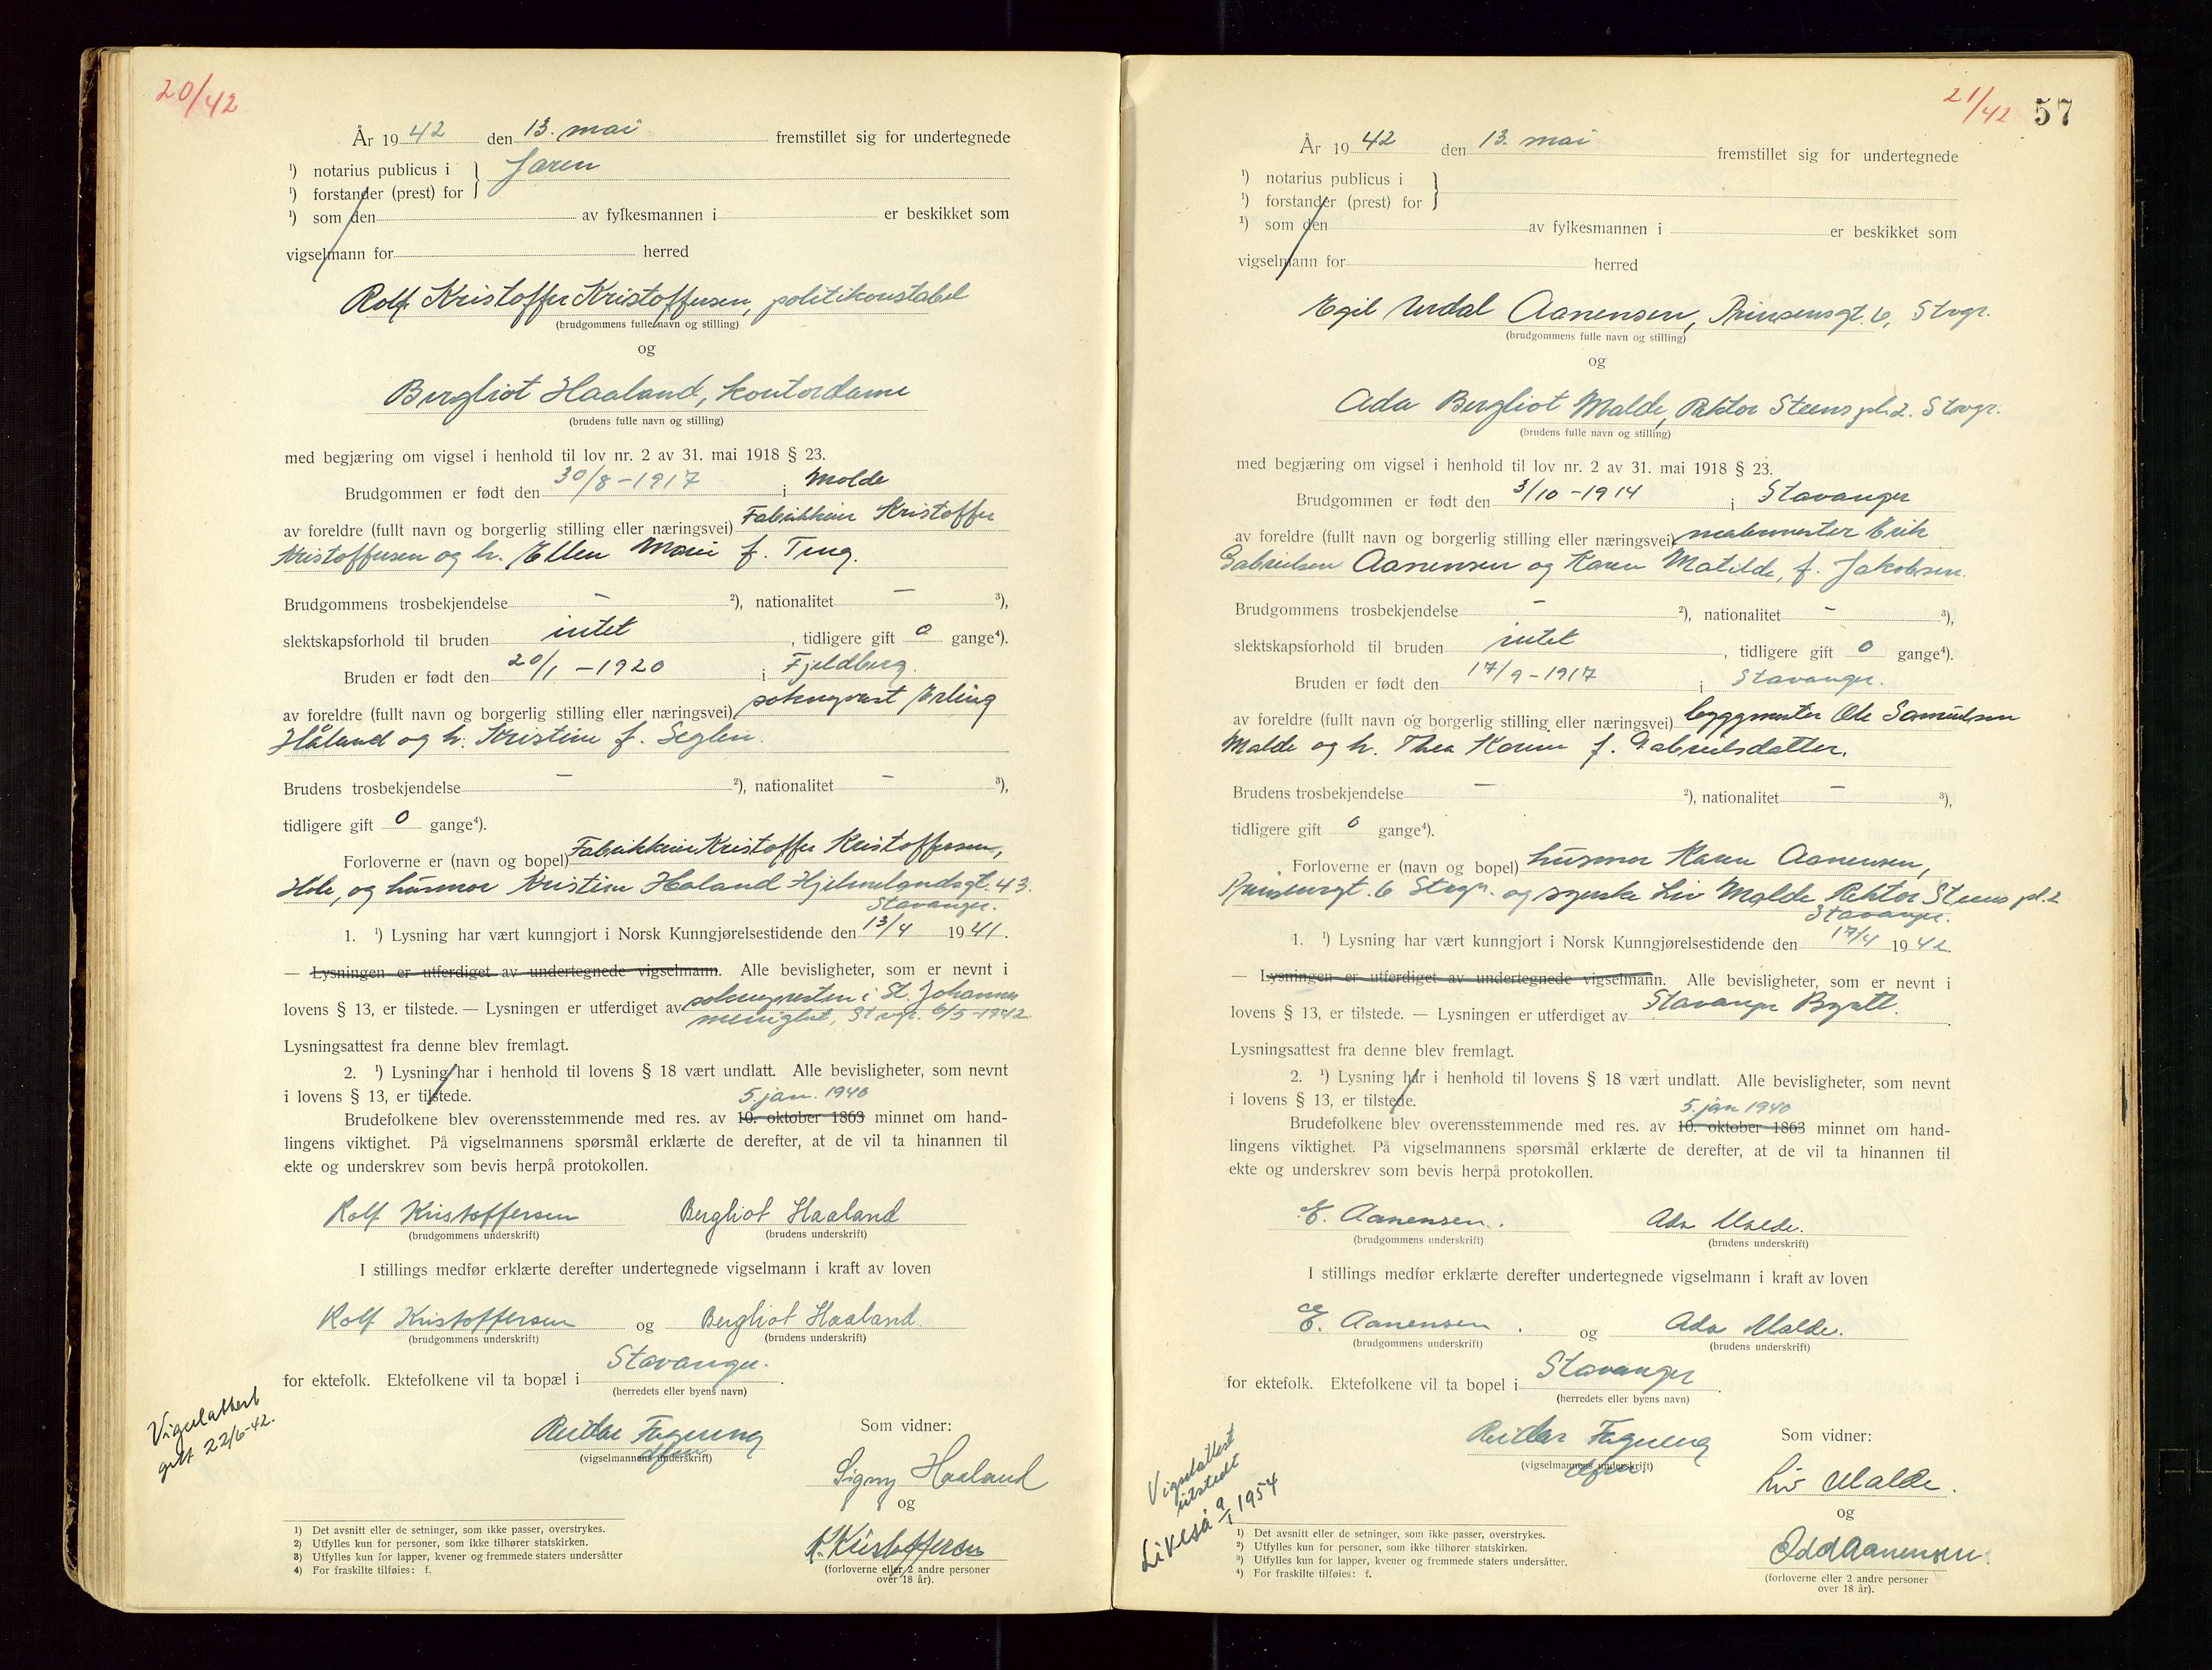 20/42
År 19 42 den 13. mai fremstillet sig for undertegnede
¹) notarius publicus i } Jæren
¹) forstander (prest) for
¹) som den av fylkesmannen i er beskikket som
vigselmann for herred
Rolf Kristoffer Kristoffersen, politikonstabel
(brudgommens fulle navn og stilling)
og
Bergliot Haaland, kontordame
(brudens fulle navn og stilling)
med begjæring om vigsel i henhold til lov nr. 2 av 31. mai 1918 § 23.
Brudgommen er født den 30/8 - 1917 i Molde
av foreldre (fullt navn og borgerlig stilling eller næringsvei) Fabrikkeier Kristoffer
Kristoffersen og h. Ellen Marie f. Tung.
Brudgommens trosbekjendelse — ²), nationalitet — ³),
slektskapsforhold til bruden intet, tidligere gift 0 gange⁴).
Bruden er født den 20/1 - 1920 i Fjeldberg.
av foreldre (fullt navn og borgerlig stilling eller næringsvei) sokneprest Erling
Håland og h. Kristine f. Seglen.
Brudens trosbekjendelse — ²), nationalitet — ³),
tidligere gift 0 gange⁴).
Forloverne er (navn og bopel) Fabrikkeier Kristoffer Kristoffersen,
Hole, og husmor Kristine Haland Hjelmelandsgt. 43.
Stavanger.
1. ¹) Lysning har vært kunngjort i Norsk Kunngjørelsestidende den 13/4 19 41.
— Lysningen er utferdiget av undertegnede vigselmann. Alle bevisligheter, som er nevnt i
lovens § 13, er tilstede. — Lysningen er utferdiget av soknepresten i St. Johannes
menighet, Stvgr. 6/5 - 1942.
Lysningsattest fra denne blev fremlagt.
2. ¹) Lysning har i henhold til lovens § 18 vært undlatt. Alle bevisligheter, som nevnt
i lovens § 13, er tilstede.
5. jan. 1940
Brudefolkene blev overensstemmende med res. av 10. oktober 1863 minnet om hand-
lingens viktighet. På vigselmannens spørsmål erklærte de derefter, at de vil ta hinannen til
ekte og underskrev som bevis herpå protokollen.
Rolf Kristoffersen Bergliot Haaland
(brudgommens underskrift) (brudens underskrift)
I stillings medfør erklærte derefter undertegnede vigselmann i kraft av loven
Rolf Kristoffersen og Bergliot Haaland
(brudgommens underskrift) (brudens underskrift)
for ektefolk. Ektefolkene vil ta bopæl i Stavanger.
(herredets eller byens navn)
Vigselattest
gitt 22/6-42.
Reidar Fagereng
(vigselmannens underskrift)
Som vidner:
Signy Haaland
og
K. Kristoffersen
(forloverne eller 2 andre personer
over 18 år).
1) Det avsnitt eller de setninger, som ikke passer, overstrykes.
2) Utfylles kun for personer, som ikke tilhører statskirken.
3) Utfylles kun for lapper, kvener og fremmede staters undersåtter
4) For fraskilte tilføies: f.
21/42 57
År 19 42 den 13. mai fremstillet sig for undertegnede
¹) notarius publicus i }
¹) forstander (prest) for
¹) som den av fylkesmannen i er beskikket som
vigselmann for herred
Egil Urdal Aanensen, Prinsensgt. 6, Stvgr.
(brudgommens fulle navn og stilling)
og
Ada Bergliot Malde, Rektor Steens pl. 2. Stvgr.
(brudens fulle navn og stilling)
med begjæring om vigsel i henhold til lov nr. 2 av 31. mai 1918 § 23.
Brudgommen er født den 3/10 - 1914 i Stavanger
av foreldre (fullt navn og borgerlig stilling eller næringsvei) malermester Erik
Gabrielsen Aanensen og Karen Matilde, f. Jakobsen.
Brudgommens trosbekjendelse - ²), nationalitet - ³),
slektskapsforhold til bruden intet, tidligere gift 0 gange⁴).
Bruden er født den 17/9 - 1917 i Stavanger.
av foreldre (fullt navn og borgerlig stilling eller næringsvei) byggmester Ole Samuelsen
Malde og h. Thea Karine f. Gabrielsdatter.
Brudens trosbekjendelse — ²), nationalitet — ³),
tidligere gift 0 gange⁴).
Forloverne er (navn og bopel) husmor Karen Aanensen,
Prinsensgt. 6 Stvgr. og Liv Malde Rektor Steens pl. 2
Stavanger.
1. ¹) Lysning har vært kunngjort i Norsk Kunngjørelsestidende den 17/4 19 42
— Lysningen er utferdiget av undertegnede vigselmann. Alle bevisligheter, som er nevnt i
lovens § 13, er tilstede. — Lysningen er utferdiget av Stavanger Byrett.
Lysningsattest fra denne blev fremlagt.
2. ¹) Lysning har i henhold til lovens § 18 vært undlatt. Alle bevisligheter, som nevnt
i lovens § 13, er tilstede.
5. jan 1940
Brudefolkene blev overensstemmende med res. av 10. oktober 1863 minnet om hand-
lingens viktighet. På vigselmannens spørsmål erklærte de derefter, at de vil ta hinannen til
ekte og underskrev som bevis herpå protokollen.
E. Aanensen. Ada Malde.
(brudgommens underskrift) (brudens underskrift)
I stillings medfør erklærte derefter undertegnede vigselmann i kraft av loven
E. Aanensen. og Ada Malde.
(brudgommens underskrift) (brudens underskrift)
for ektefolk. Ektefolkene vil ta bopel i Stavanger.
(herredets eller byens navn)
Vigselattest
utstedt
Likeså 9/1 1954
Reidar Fagereng
(vigselmannens underskrift)
Som vidner:
Liv Malde.
og
Odd Aanensen.
(forloverne eller 2 andre personer
over 18 år).
¹) Det avsnitt eller de setninger, som ikke passer, overstrykes.
²) Utfylles kun for personer, som ikke tilhører statskirken.
³) Utfylles kun for lapper, kvener og fremmede staters undersåtter.
⁴) For fraskilte tilføies: f.